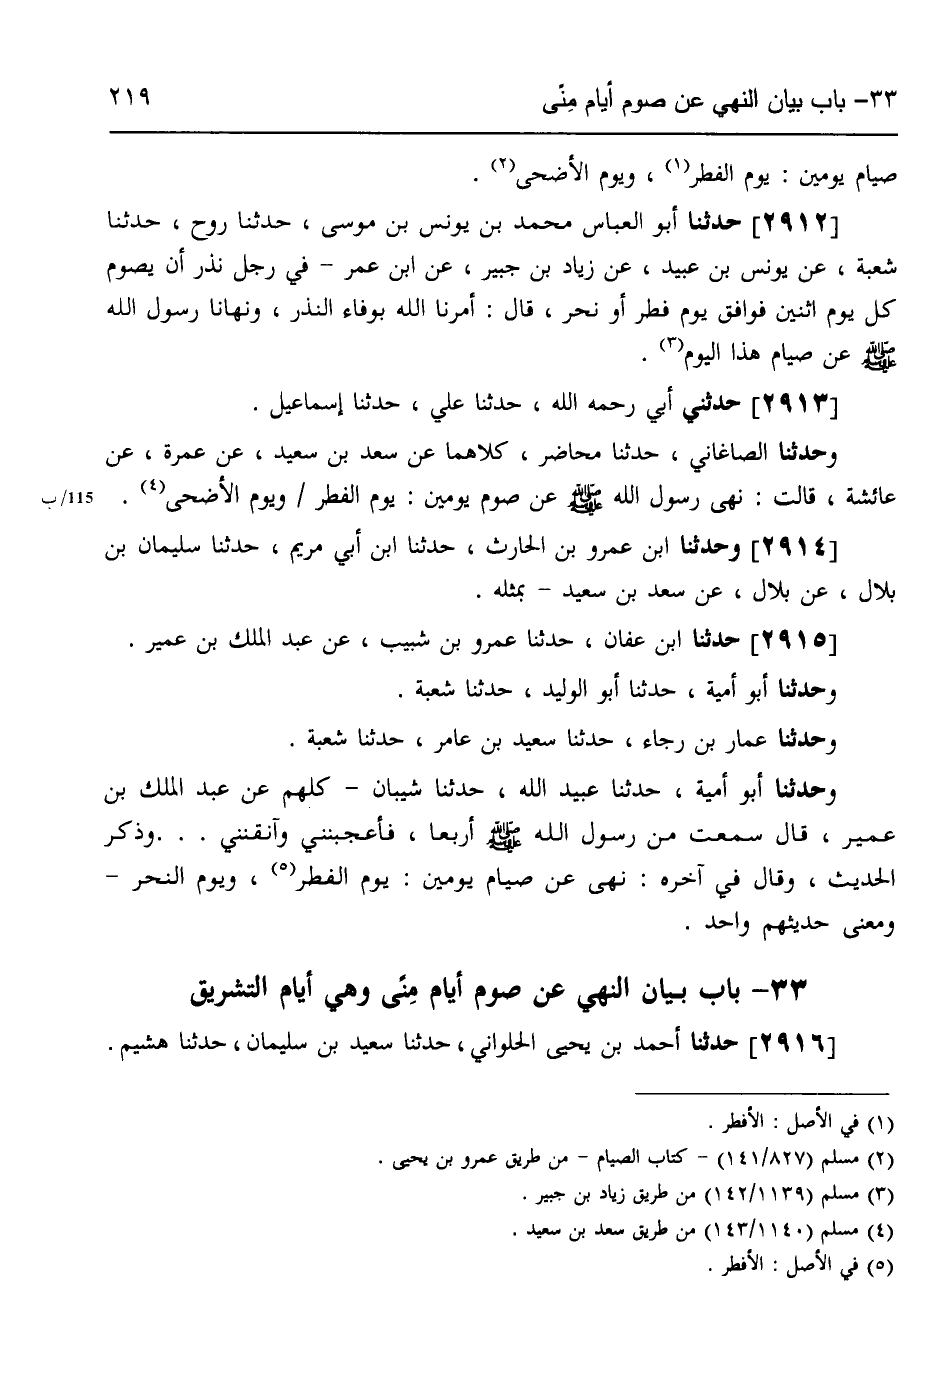 ٣٣- باب بيان النهي عن صوم أيام مِنًى ٢١٩
صيام يومين : يوم الفطر(١) ، ويوم الأضحى(٢) .
[٢٩١٢] حدثنا أبو العباس محمد بن يونس بن موسى ، حدثنا روح ، حدثنا
شعبة ، عن يونس بن عبيد ، عن زياد بن جبير ، عن ابن عمر – في رجل نذر أن يصوم
كل يوم اثنين فوافق يوم فطر أو نحر ، قال : أمرنا الله بوفاء النذر ، ونهانا رسول الله
ﷺ عن صيام هذا اليوم(٣) .
[٢٩١٣] حدثني أبي رحمه الله ، حدثنا علي ، حدثنا إسماعيل .
وحدثنا الصاغاني ، حدثنا محاضر ، كلاهما عن سعد بن سعيد ، عن عمرة ، عن
عائشة ، قالت : نهى رسول الله ﷺ عن صوم يومين : يوم الفطر / ويوم الأضحى(٤) . 115/ب
[٢٩١٤] وحدثنا ابن عمرو بن الحارث ، حدثنا ابن أبي مريم ، حدثنا سليمان بن
بلال ، عن بلال ، عن سعد بن سعيد – بمثله .
[٢٩١٥] حدثنا ابن عفان ، حدثنا عمرو بن شبيب ، عن عبد الملك بن عمير .
وحدثنا أبو أمية ، حدثنا أبو الوليد ، حدثنا شعبة .
وحدثنا عمار بن رجاء ، حدثنا سعيد بن عامر ، حدثنا شعبة .
وحدثنا أبو أمية ، حدثنا عبيد الله ، حدثنا شيبان – كلهم عن عبد الملك بن
عمير ، قال سمعت من رسول الله ﷺ أربعا ، فأعجبنني وآنقنني . . .وذكر
الحديث ، وقال في آخره : نهى عن صيام يومين : يوم الفطر(٥) ، ويوم النحر –
ومعنى حديثهم واحد .
٣٣- باب بيان النهي عن صوم أيام مِنًى وهي أيام التشريق
[٢٩١٦] حدثنا أحمد بن يحيى الحلواني، حدثنا سعيد بن سليمان، حدثنا هشيم .
(١) في الأصل : الأفطر .
(٢) مسلم (١٤١/٨٢٧) – كتاب الصيام – من طريق عمرو بن يحيى .
(٣) مسلم (١٤٢/١١٣٩) من طريق زياد بن جبير .
(٤) مسلم (١٤٣/١١٤٠) من طريق سعد بن سعيد .
(٥) في الأصل : الأفطر .